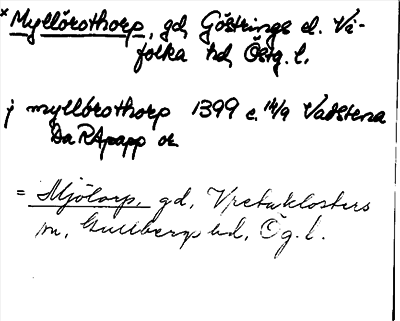 * Myllörothorp, gd, Göstrings el. Vi-
folka hd, Östg. l.
j myllörothorp 1399 c. 14/9 Vadstena
Da RApapp or.
= Mjölorp, gd, Vretaklosters
sn, Gullbergs hd, Ög. l.